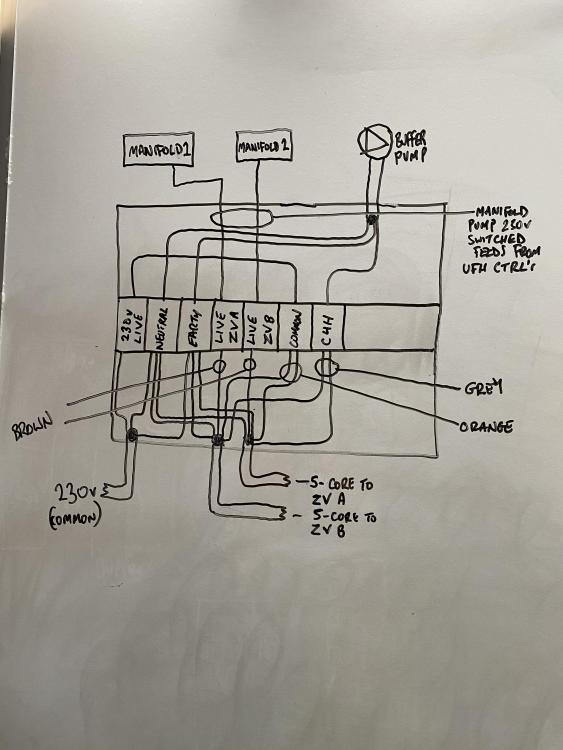 MANIFOLD 1
MANIFOLD 2
BUFFER
PUMP
MANIFOLD
PUMP 230V
SWITCHED
FEEDS FROM
UFH CTRL's
230V
LIVE
NEUTRAL
EARTH
LIVE
ZVA
LIVE
ZVB
COMMON
C4H
BROWN
GREY
ORANGE
230V
(COMMON)
5-CORE TO
ZV A
5-CORE TO
ZV B